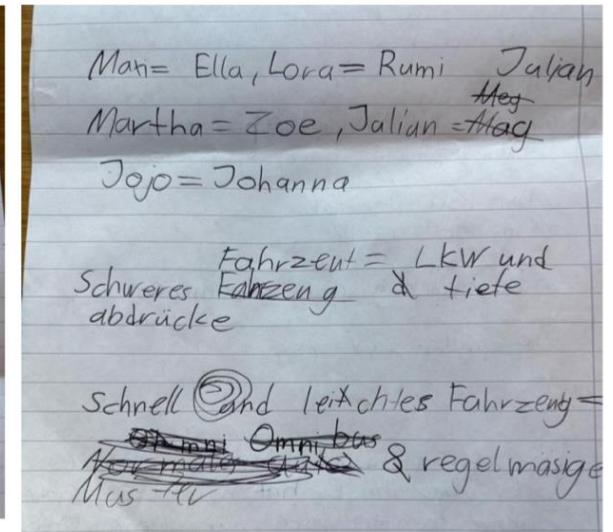 Mari= Ella, Lora= Rumi Julian
Meg
Martha= Zoe, Julian = Mag
Jojo= Johanna
Fahrzeut = LKW und
Schweres Fahzeug & tiefe
abdrücke
Schnell and leichtes Fahrzeug =
Omni Omnibus
& regelmäsige
Muster